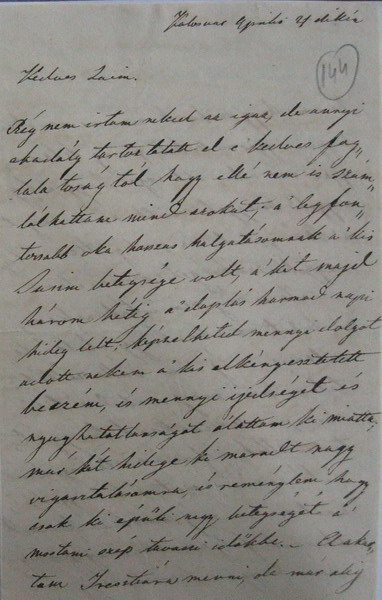 Kolosvar Aprili 21 dikén
144
Kedves Zsim.
Rég nem irtam neked az igaz, de annyi
akadály tartoztatott el e kedves fog„
lala toságtól hogy ellé nem is szám„
lálhattam mind azokat; a' legfon„
tossabb oka hosszas halgatásomnak a' kis
Susim betegsége volt, a' kit majd
három hétig a' elaptás harmad napi
hideg lelt; képzelheted mennyi dolgot
adott nekem a' kis elkényesztetett
beszém, is mennyi ijedséget és
nyughatatlanságot álottam ki miatta,
már két hidege ki maradt nagy
vigasztalásomra, és reménylem hogy
csak ki épüli nagy betegségét a'
mostani szép tavaszi időkbe. _ El akar„
tam menni, de már alig